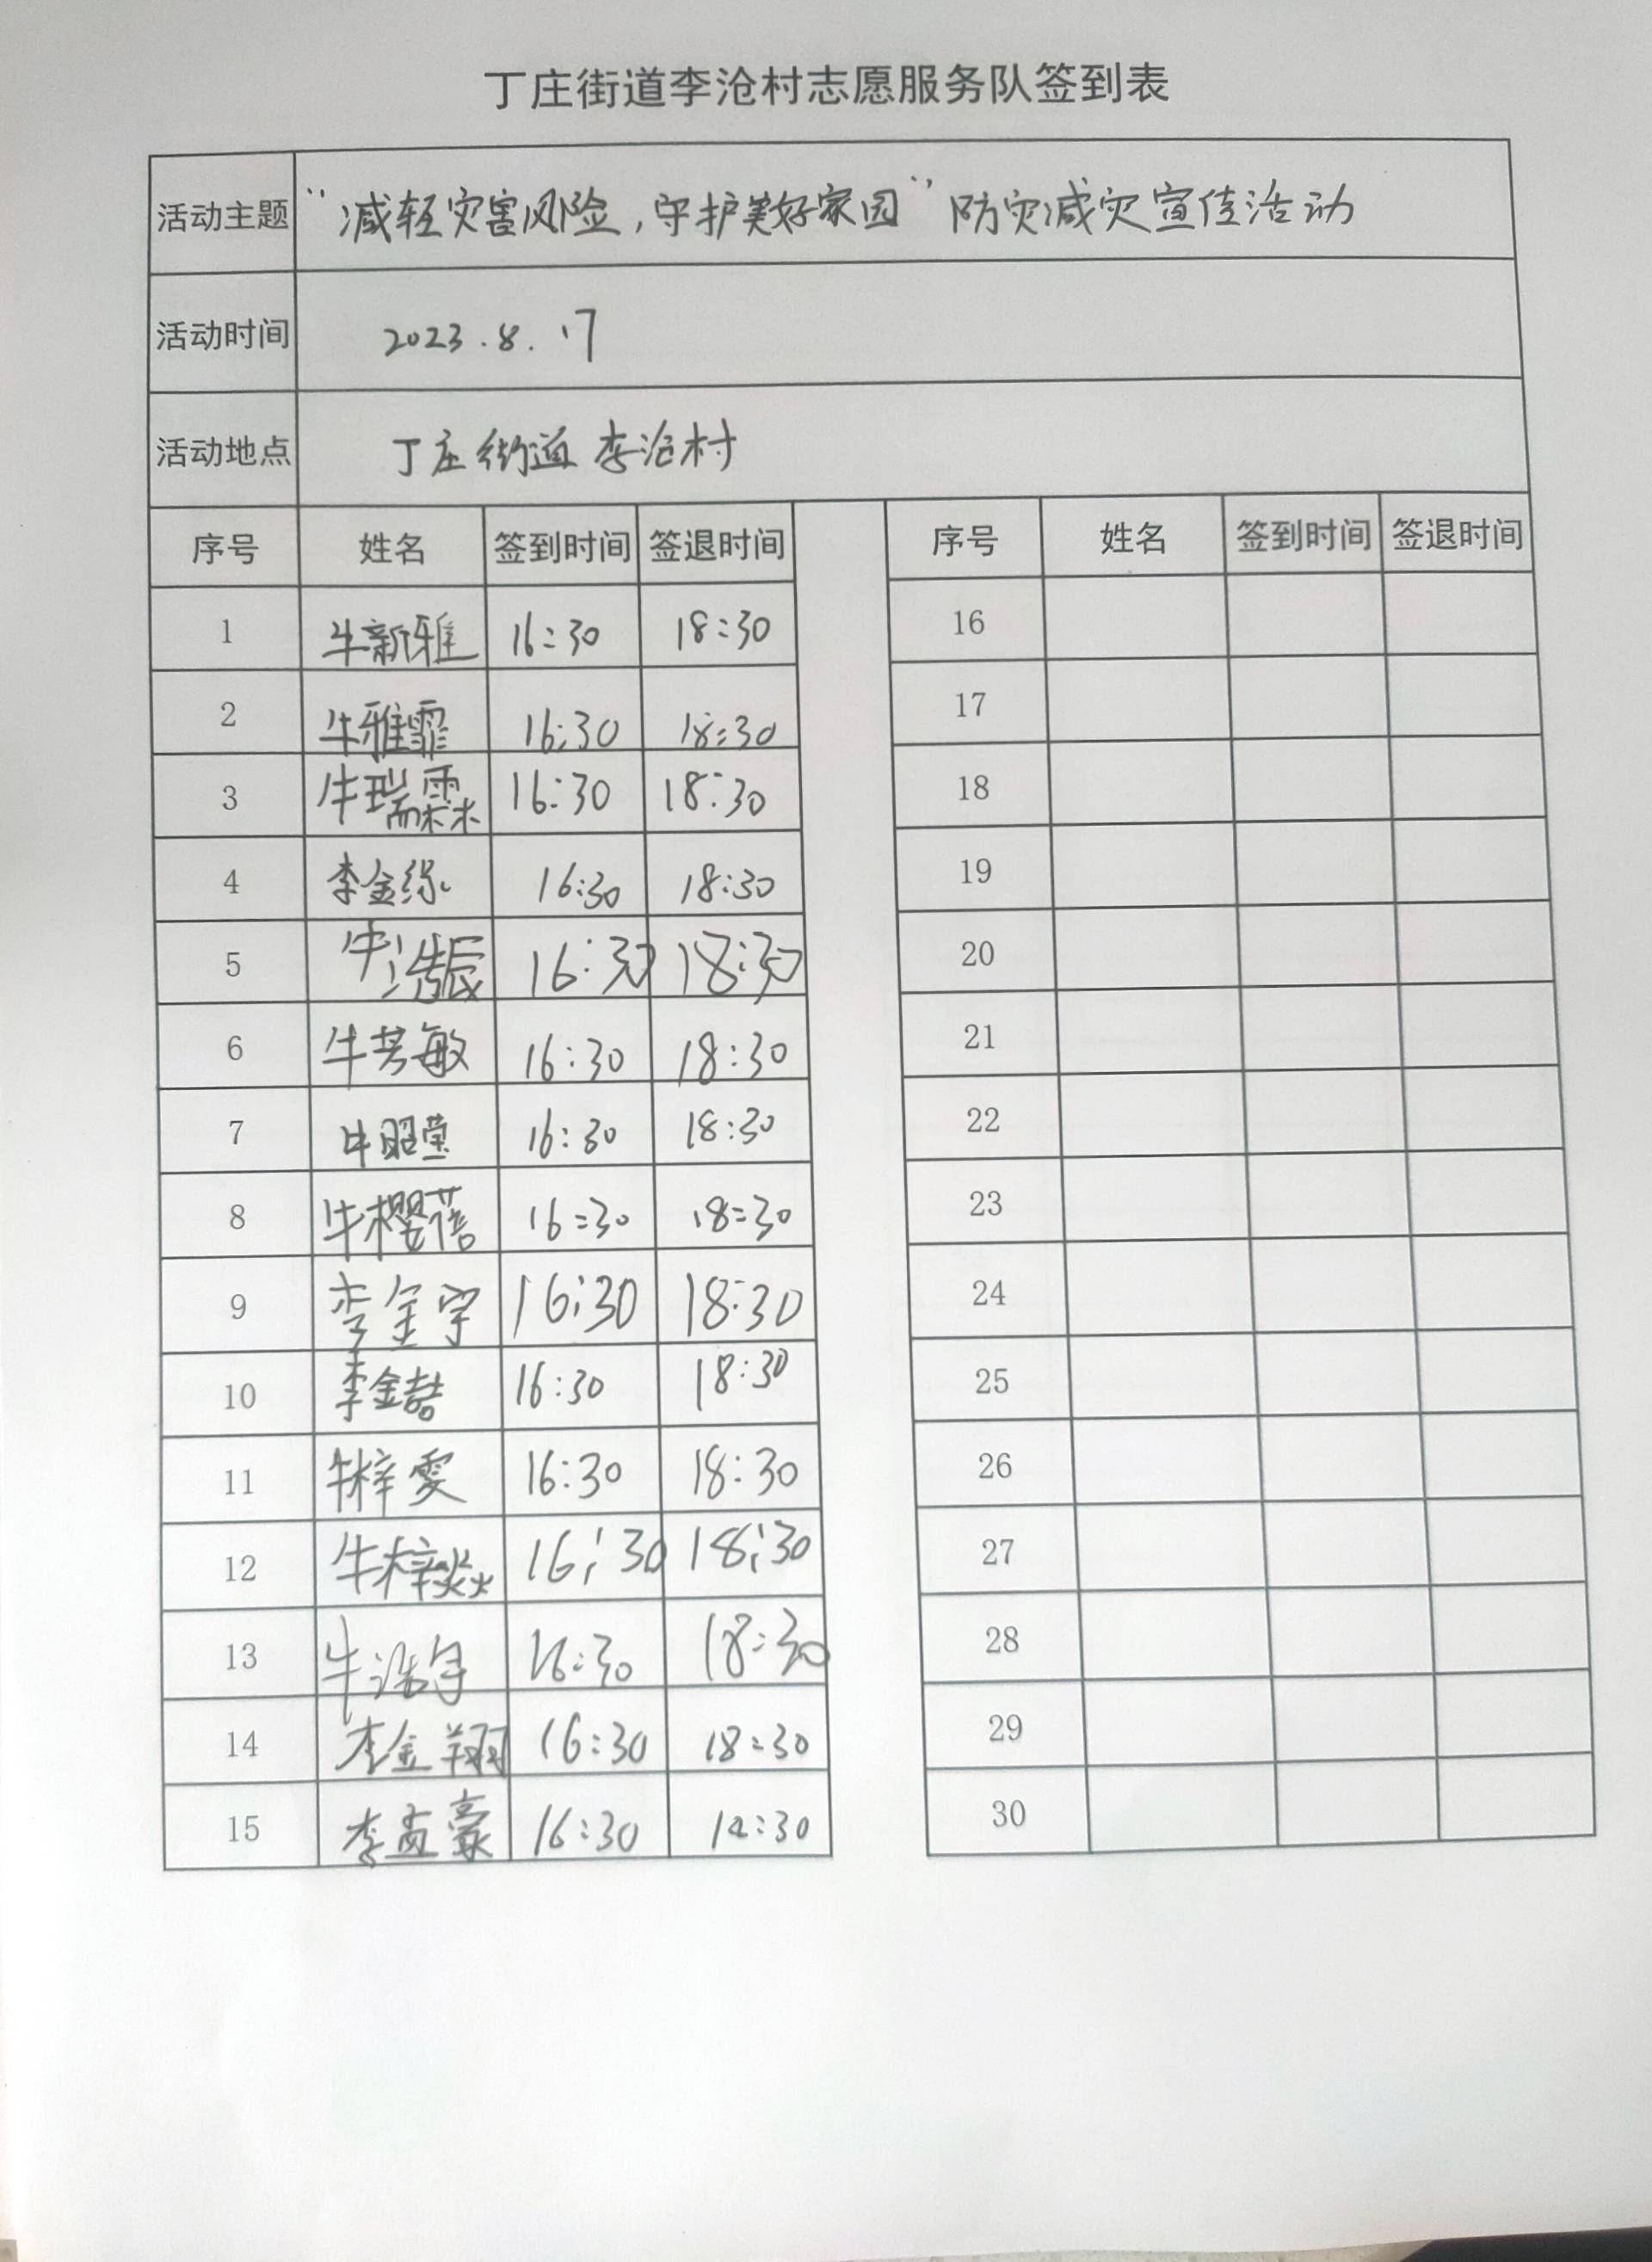 丁庄街道李沧村志愿服务队签到表
活动主题 “减轻灾害风险,守护美好家园”防灾减灾宣传活动
活动时间 2023.8.17
活动地点 丁庄街道李沧村
序号 姓名 签到时间 签退时间 序号 姓名 签到时间 签退时间
1 牛新雅 16:30 18:30 16
2 牛雅霏 16:30 18:30 17
3 牛瑞霖 16:30 18:30 18
4 李金 16:30 18:30 19
5 牛浩辰 16:30 18:30 20
6 牛芳敏 16:30 18:30 21
7 牛昭莹 16:30 18:30 22
8 牛樱蓓 16:30 18:30 23
9 李金宇 16:30 18:30 24
10 李金喆 16:30 18:30 25
11 牛梓雯 16:30 18:30 26
12 牛梓焱 16:30 18:30 27
13 牛浩宇 16:30 18:30 28
14 李金翔 16:30 18:30 29
15 李孟豪 16:30 18:30 30